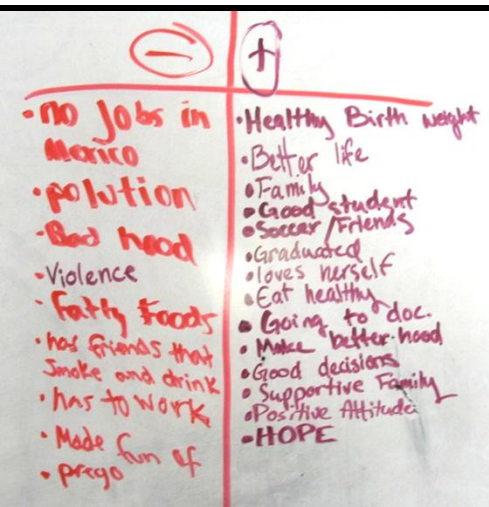 −
• no Jobs in
Mexico
• polution
• Bad hood
• Violence
• Fatty Foods
• has friends that
Smoke and drink
• has to work
• Made fun of
• prego
+
• Healthy Birth weight
• Better life
• Family
• Good student
• Soccer/Friends
• Graduated
• loves herself
• Eat healthy
• Going to doc.
• Make better-hood
• Good decisions
• Supportive Family
• Positive Attitude
• HOPE